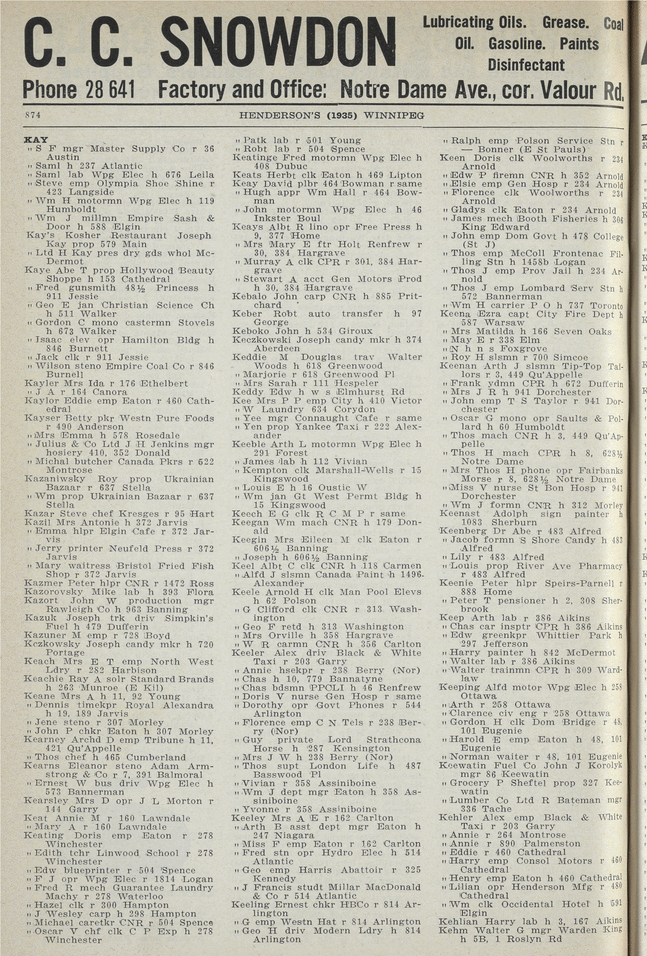 C. C. SNOWDON
Lubricating Oils. Grease. Coal
Oil. Gasoline. Paints
Disinfectant
Phone 28 641 Factory and Office: Notre Dame Ave., cor. Valour Rd.
874 HENDERSON'S (1935) WINNIPEG
KAY
" S F mgr Master Supply Co r 36
Austin
" Saml h 237 Atlantic
" Saml lab Wpg Elec h 676 Leila
" Steve emp Olympia Shoe Shine r
423 Langside
" Wm H motormn Wpg Elec h 119
Humboldt
" Wm J millmn Empire Sash &
Door h 588 Elgin
Kay's Kosher Restaurant Joseph
Kay prop 579 Main
" Ltd H Kay pres dry gds whol Mc-
Dermot
Kaye Abe T prop Hollywood Beauty
Shoppe h 153 Cathedral
" Fred gunsmith 48½ Princess h
911 Jessie
" Geo E jan Christian Science Ch
h 511 Walker
" Gordon C mono castermn Stovels
h 673 Walker
" Isaac elev opr Hamilton Bldg h
846 Burnett
" Jack clk r 911 Jessie
" Wilson steno Empire Coal Co r 846
Burnell
Kayler Mrs Ida r 176 Ethelbert
" J A r 164 Canora
Kaylor Eddie emp Eaton r 460 Cath-
edral
Kayser Betty pkr Westn Pure Foods
r 490 Anderson
" Mrs Emma h 578 Rosedale
" Julius & Co Ltd J H Jenkins mgr
hosiery 410, 352 Donald
" Michal butcher Canada Pkrs r 622
Montrose
Kazaniwsky Roy prop Ukrainian
Bazaar r 637 Stella
" Wm prop Ukrainian Bazaar r 637
Stella
Kazar Steve chef Kresges r 95 Hart
Kazil Mrs Antonie h 372 Jarvis
" Emma hlpr Elgin Cafe r 372 Jar-
vis
" Jerry printer Neufeld Press r 372
Jarvis
" Mary waitress Bristol Fried Fish
Shop r 372 Jarvis
Kazmer Peter hlpr CNR r 1472 Ross
Kazorovsky Mike lab h 393 Flora
Kazort John W production mgr
Rawleigh Co h 963 Banning
Kazuk Joseph trk driv Simpkin's
Fuel h 479 Dufferin
Kazuner M emp r 728 Boyd
Kczkowsky Joseph candy mkr h 720
Portage
Keach Mrs E T emp North West
Ldry r 282 Harbison
Keachie Ray A solr Standard Brands
h 263 Munroe (E Kil)
Keane Mrs A h 11, 92 Young
" Dennis timekpr Royal Alexandra
h 19, 189 Jarvis
" Jene steno r 307 Morley
" John P chkr Eaton h 307 Morley
Kearney Archd D emp Tribune h 11,
421 Qu'Appelle
" Thos chef h 465 Cumberland
Kearns Eleanor steno Adam Arm-
strong & Co r 7, 391 Balmoral
" Ernest W bus driv Wpg Elec h
573 Bannerman
Kearsley Mrs D opr J L Morton r
144 Garry
Keat Annie M r 160 Lawndale
" Mary A r 160 Lawndale
Keating Doris emp Eaton r 278
Winchester
" Edith tchr Linwood School r 278
Winchester
" Edw blueprinter r 504 Spence
" F J opr Wpg Elec r 1814 Logan
" Fred R mech Guarantee Laundry
Machy r 278 Waterloo
" Hazel clk r 300 Hampton
" J Wesley carp h 298 Hampton
" Michael caretkr CNR r 504 Spence
" Oscar V chf clk C P Exp h 278
Winchester
" Patk lab r 501 Young
" Robt lab r 504 Spence
Keatinge Fred motormn Wpg Elec h
408 Dubuc
Keats Herbt clk Eaton h 469 Lipton
Keay David plbr 464 Bowman r same
" Hugh appr Wm Hall r 464 Bow-
man
" John motormn Wpg Elec h 46
Inkster Boul
Keays Albt R lino opr Free Press h
9, 377 Home
" Mrs Mary E ftr Holt Renfrew r
30, 384 Hargrave
" Murray A clk CPR r 301, 384 Har-
grave
" Stewart A acct Gen Motors Prod
h 30, 384 Hargrave
Kebalo John carp CNR h 885 Prit-
chard
Keber Robt auto transfer h 97
George
Keboko John h 534 Giroux
Keczkowski Joseph candy mkr h 374
Aberdeen
Keddie M Douglas trav Walter
Woods h 618 Greenwood
" Marjorie r 618 Greenwood Pl
" Mrs Sarah r 111 Hespeler
Keddy Edw h w s Elmhurst Rd
Kee Mrs P P emp City h 410 Victor
" W Laundry 634 Corydon
" Yee mgr Connaught Cafe r same
" Yen prop Yankee Taxi r 222 Alex-
ander
Keeble Arth L motormn Wpg Elec h
291 Forest
" James lab h 112 Vivian
" Kempton clk Marshall-Wells r 15
Kingswood
" Louis E h 16 Oustic W
" Wm jan Gt West Permt Bldg h
15 Kingswood
Keech E G clk R C M P r same
Keegan Wm mach CNR h 179 Don-
ald
Keegin Mrs Eileen M clk Eaton r
606½ Banning
" Joseph h 606½ Banning
Keel Albt C clk CNR h 118 Carmen
" Alfd J slsmn Canada Paint h 1496-
Alexander
Keele Arnold H clk Man Pool Elevs
h 62 Polson
" G Clifford clk CNR r 313 Wash-
ington
" Geo F retd h 313 Washington
" Mrs Orville h 358 Hargrave
" W R carmn CNR h 356 Carlton
Keeler Alex driv Black & White
Taxi r 203 Garry
" Annie hsekpr r 238 Berry (Nor)
" Chas h 10, 779 Bannatyne
" Chas bdsmn PPCLI h 46 Renfrew
" Doris V nurse Gen Hosp r same
" Dorothy opr Govt Phones r 544
Arlington
" Florence emp C N Tels r 238 Ber-
ry (Nor)
" Guy private Lord Strathcona
Horse h 287 Kensington
" Mrs J W h 238 Berry (Nor)
" Thos supt London Life h 487
Basswood Pl
" Vivian r 358 Assiniboine
" Wm J dept mgr Eaton h 358 As-
siniboine
" Yvonne r 358 Assiniboine
Keeley Mrs A E r 162 Carlton
" Arth B asst dept mgr Eaton h
247 Niagara
" Miss F emp Eaton r 162 Carlton
" Fred stn opr Hydro Elec h 514
Atlantic
" Geo emp Harris Abattoir r 325
Kennedy
" J Francis studt Millar MacDonald
& Co r 514 Atlantic
Keeling Ernest chkr HBCo r 814 Ar-
lington
" G emp Westn Hat r 814 Arlington
" Geo H driv Modern Ldry h 814
Arlington
" Ralph emp Polson Service Stn r
— Bonner (E St Pauls)
Keen Doris clk Woolworths r 234
Arnold
" Edw P firemn CNR h 352 Arnold
" Elsie emp Gen Hosp r 234 Arnold
" Florence clk Woolworths r 234
Arnold
" Gladys clk Eaton r 234 Arnold
" James mech Booth Fisheries h 304
King Edward
" John emp Dom Govt h 478 College
(St J)
" Thos emp McColl Frontenac Fil-
ling Stn h 1458b Logan
" Thos J emp Prov Jail h 234 Ar-
nold
" Thos J emp Lombard Serv Stn h
572 Bannerman
" Wm H carrier P O h 737 Toronto
Keena Ezra capt City Fire Dept h
587 Warsaw
" Mrs Matilda h 166 Seven Oaks
" May E r 338 Elm
" N h n s Foxgrove
" Roy H slsmn r 700 Simcoe
Keenan Arth J slsmn Tip-Top Tai-
lors r 3, 449 Qu'Appelle
" Frank ydmn CPR h 672 Dufferin
" Mrs J R h 941 Dorchester
" John emp T S Taylor r 941 Dor-
chester
" Oscar G mono opr Saults & Pol-
lard h 60 Humboldt
" Thos mach CNR h 3, 449 Qu'Ap-
pelle
" Thos H mach CPR h 8, 628½
Notre Dame
" Mrs Thos H phone opr Fairbanks
Morse r 8, 628½ Notre Dame
" Miss V nurse St Bon Hosp r 941
Dorchester
" Wm J formn CNR h 312 Morley
Keenast Adolph sign painter h
1083 Sherburn
Keenberg Dr Abe r 483 Alfred
" Jacob formn S Shore Candy h 483
Alfred
" Lily r 483 Alfred
" Louis prop River Ave Pharmacy
r 483 Alfred
Keenie Peter hlpr Speirs-Parnell r
888 Home
" Peter T pensioner h 2, 308 Sher-
brook
Keep Arth lab r 386 Aikins
" Chas car insptr CPR h 386 Aikins
" Edw greenkpr Whittier Park h
297 Jefferson
" Harry painter h 842 McDermot
" Walter lab r 386 Aikins
" Walter trainmn CPR h 309 Ward-
law
Keeping Alfd motor Wpg Elec h 258
Ottawa
" Arth r 258 Ottawa
" Clarence civ eng r 258 Ottawa
" Gordon H clk Dom Bridge r 48,
101 Eugenie
" Harold E emp Eaton h 48, 101
Eugenie
" Norman waiter r 48, 101 Eugenie
Keewatin Fuel Co John J Korolyk
mgr 86 Keewatin
" Grocery P Sheftel prop 327 Kee-
watin
" Lumber Co Ltd R Bateman mgr
336 Tache
Kehler Alex emp Black & White
Taxi r 203 Garry
" Annie r 264 Montrose
" Annie r 890 Palmerston
" Eddie r 460 Cathedral
" Harry emp Consol Motors r 460
Cathedral
" Henry emp Eaton h 460 Cathedral
" Lilian opr Henderson Mfg r 480
Cathedral
" Wm clk Occidental Hotel h 591
Elgin
Kehlian Harry lab h 3, 167 Aikins
Kehm Walter G mgr Warden King
h 5B, 1 Roslyn Rd